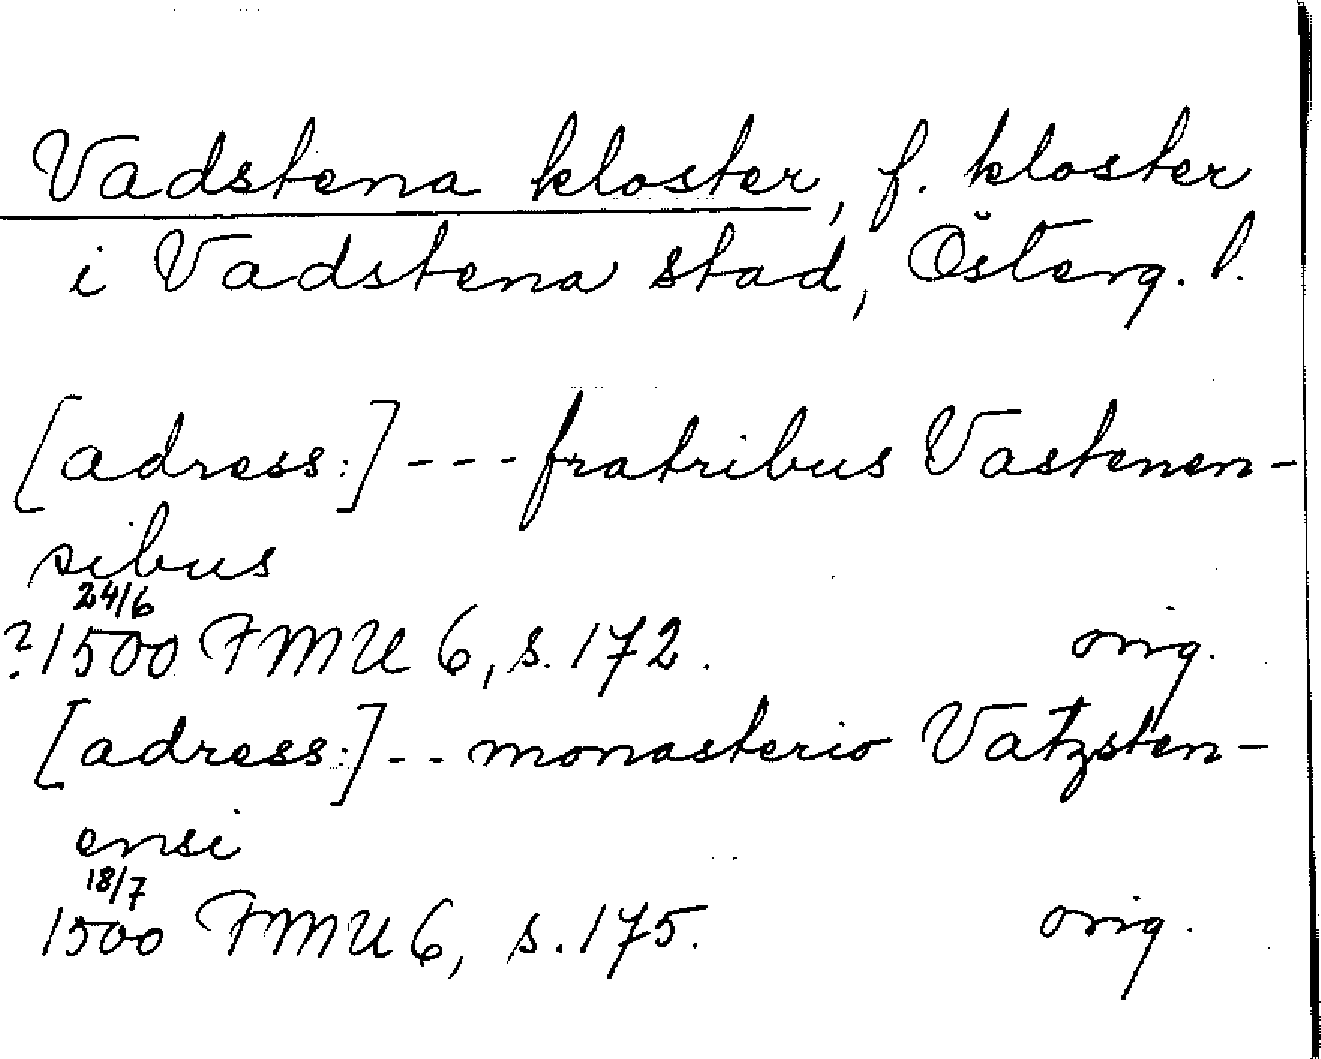 Vadstena kloster, f. kloster
i Vadstena stad, Österg. l.
[adress:] --- fratribus Vastenen-
sibus
24/6
?1500 FMU 6, s. 172. orig.
[adress:] -- monasterio Vatzsten-
ensi
18/7
1500 FMU 6, s. 175. orig.